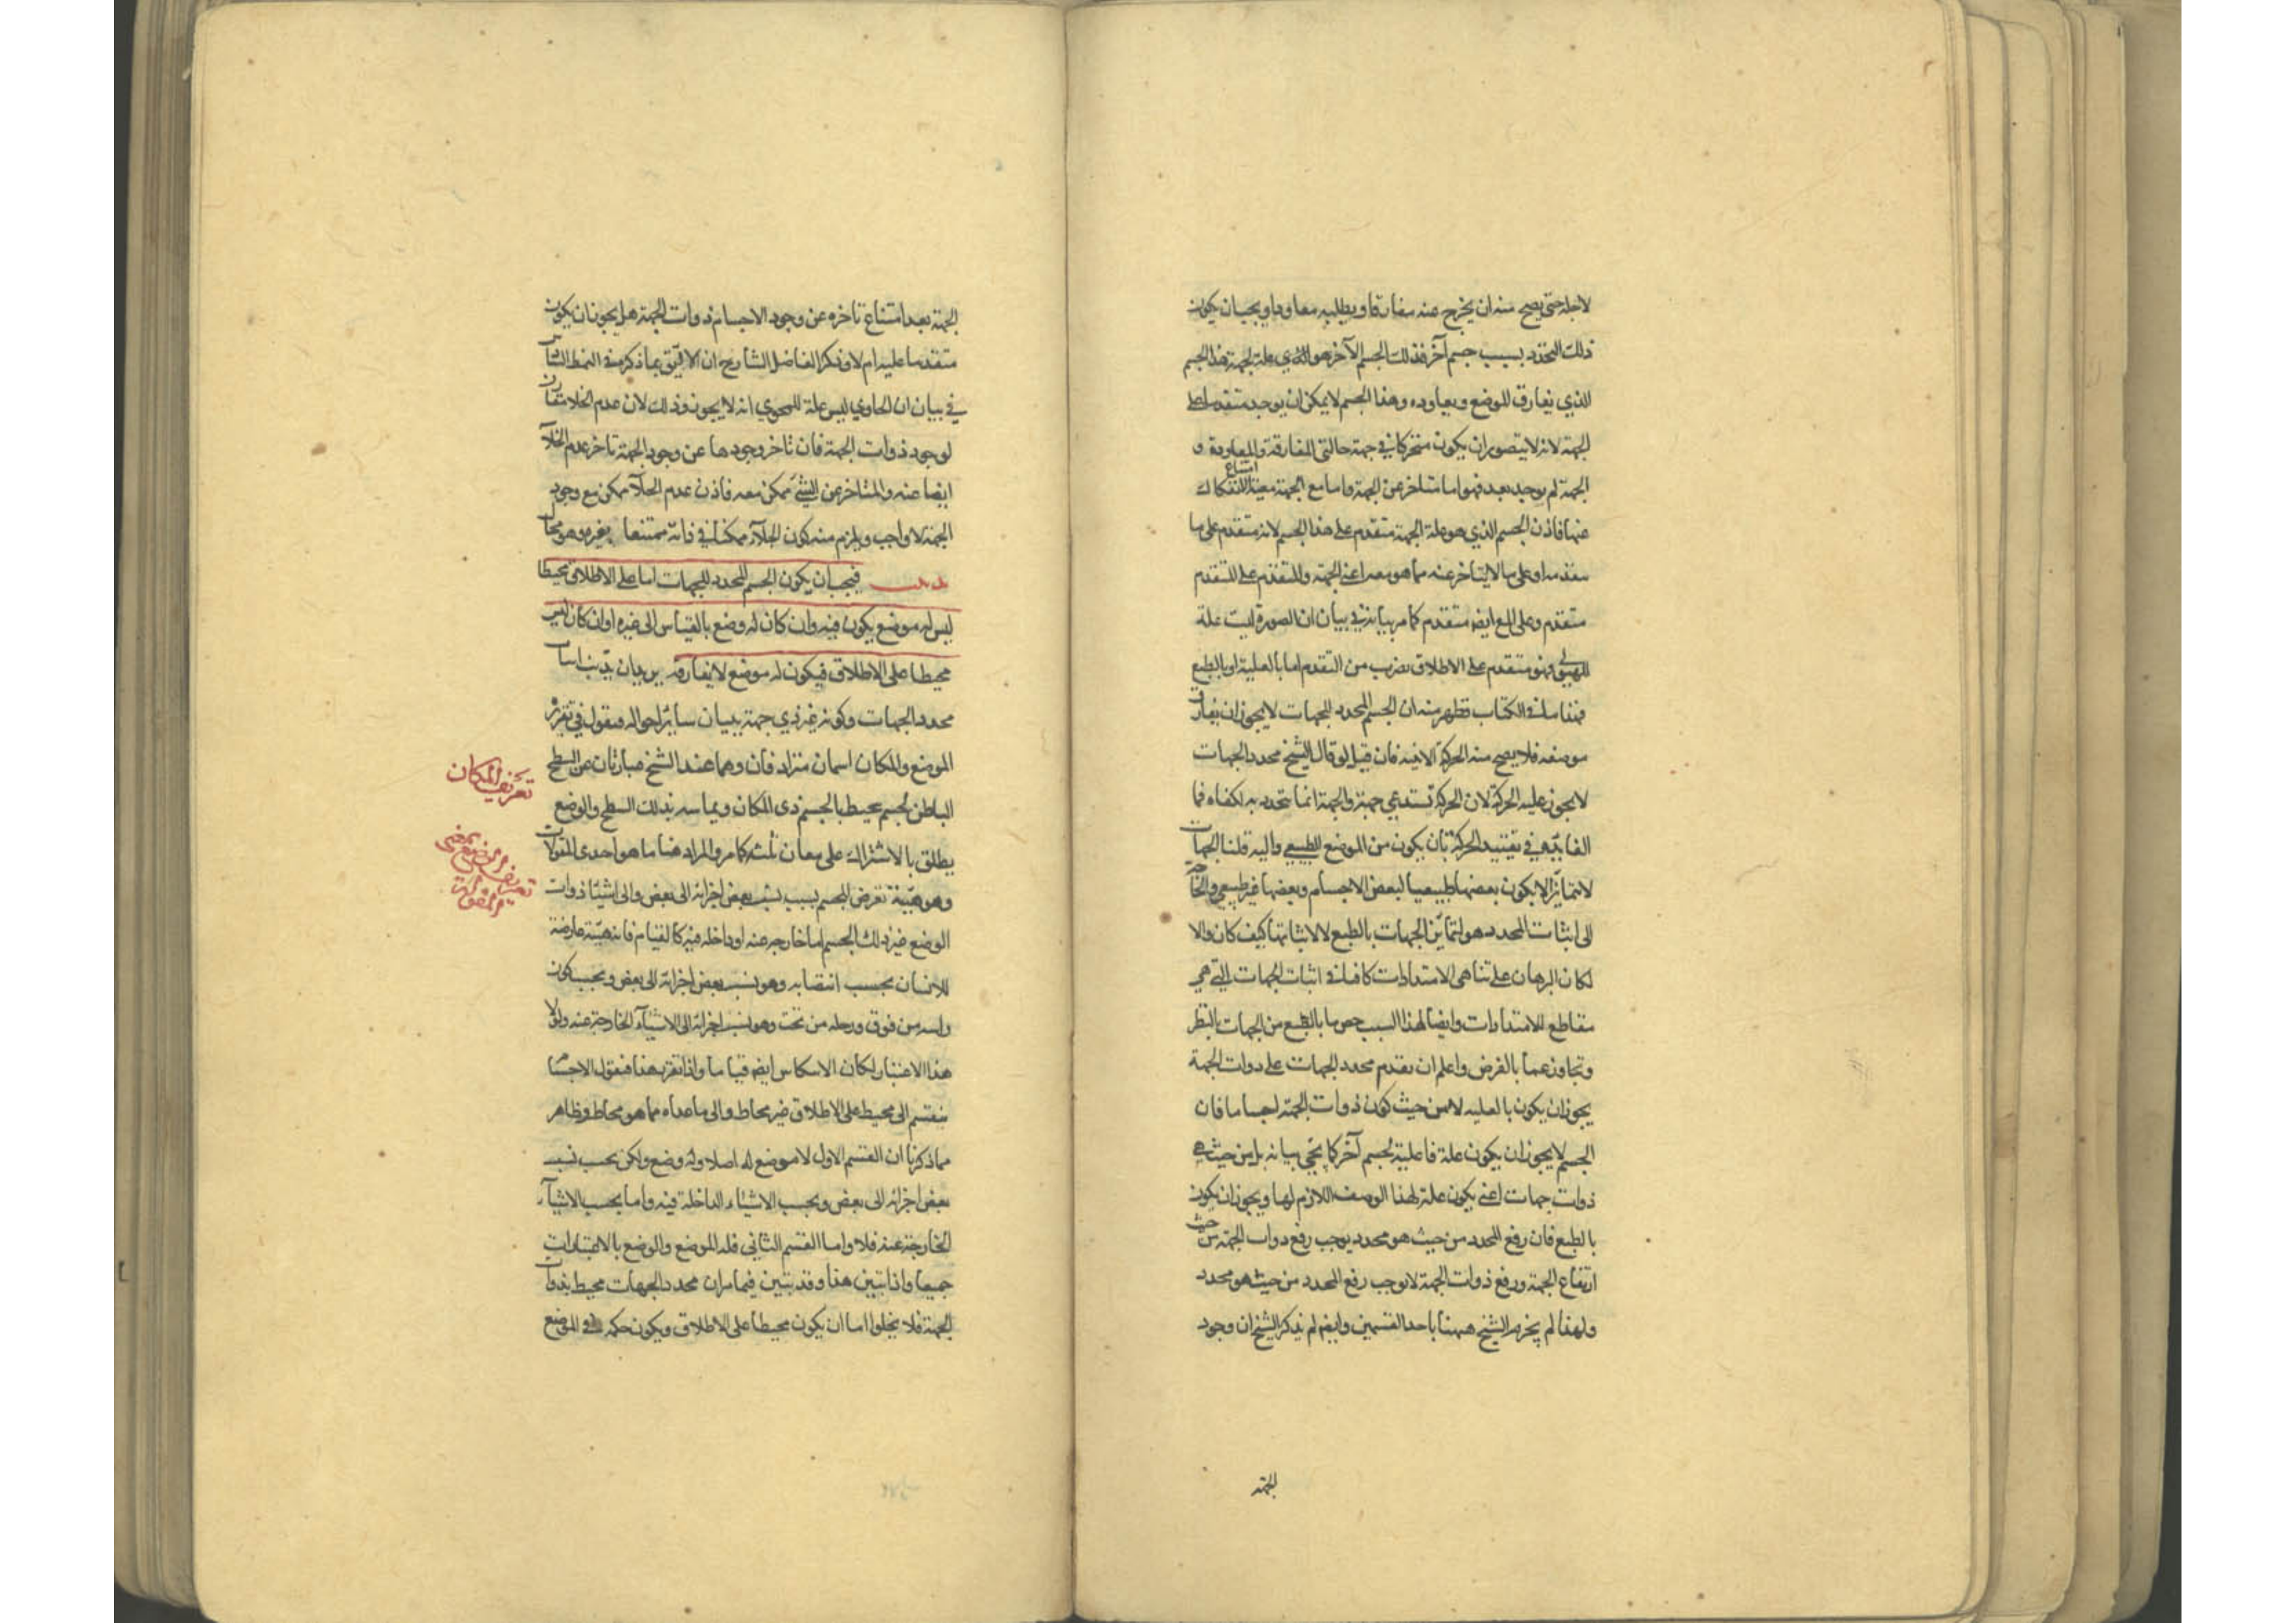 لاجله حتى يصح منه ان يخرج عنه مفارقا ويطلبه معاودا ويجب ان يكون
ذلك التحدد بسبب جسم آخر فذلك الجسم الآخر هو الذي علة لجهة هذا الجسم
الذي يفارق الموضع ويعاوده وهذا الجسم لا يمكن ان يوجد متقدما على
الجهة لانه لا يتصور ان يكون متحركا في جهة حالتي المفارقة والمعاودة و
الجهة لم يوجد بعد فهو اما متاخر عن الجهة واما مع الجهة معية امتناع الانفكاك
عنها فاذن الجسم الذي هو علة الجهة متقدم على هذا الجسم لانه متقدم على ما
يتقدمه او على ما لا يتاخر عنه مما هو معه اعني الجهة والمتقدم على المتقدم
متقدم وعلى المع ايضا متقدم كما مر بيانه في بيان ان الصورة ليست علة
للهيولى فهو متقدم على الاطلاق بضرب من التقدم اما بالعلية او بالطبع
فهذا ما في الكتاب فظهر منه ان الجسم المحدد للجهات لا يجوز ان يفارق
موضعه فلا يصح منه الحركة الاينية فان قيل لو قال الشيخ محدد الجهات
لا يجوز عليه الحركة لان الحركة تستدعي جهة والجهة انما تتحدد به لكفاه فما
الفائدة في تقييد الحركة بان يكون من الموضع الطبيعي واليه قلنا الجهات
لا تتمايز الا بكون بعضها طبيعيا لبعض الاجسام وبعضها غير طبيعي والحاجة
الى اثبات المحدد هو لتمايز الجهات بالطبع لا لاثباتها كيف كان والا
لكان البرهان على تناهي الامتدادات كافيا في اثبات الجهات التي هي
مقاطع للامتدادات وايضا لهذا السبب خص ما بالطبع من الجهات بالنظر
وتجاوز عما بالفرض واعلم ان تقدم محدد الجهات على ذوات الجهة
يجوز ان يكون بالعلية لا من حيث كون ذوات الجهة اجساما فان
الجسم لا يجوز ان يكون علة فاعلية لجسم آخر كما يجئ بيانه بل من حيث هي
ذوات جهات اعني يكون علة لهذا الوصف اللازم لها ويجوز ان يكون
بالطبع فان رفع المحدد من حيث هو محدد يوجب رفع ذوات الجهة من حيث
ارتفاع الجهة ورفع ذوات الجهة لا يوجب رفع المحدد من حيث هو محدد
ولهذا لم يجزم الشيخ ههنا باحد القسمين وايضا لم يذكر الشيخ ان وجود
الجهة
الجهة بعد امتناع تاخره عن وجود الاجسام ذوات الجهة هل يجوز ان يكون
متقدما عليه ام لا وذكر الفاضل الشارح ان الاليق بما ذكره في النمط السادس
في بيان ان الحاوي ليس علة للمحوي انه لا يجوز وذلك لان عدم الخلا مقارن
لوجود ذوات الجهة فان تاخر وجودها عن وجود الجهة تاخر عدم الخلآ
ايضا عنه والمتاخر عن الشئ ممكن معه فاذن عدم الخلآ ممكن مع وجود
الجهة لا واجب ويلزم منه كون الخلآء ممكنا في ذاته ممتنعا بغيره وهو محال
فيجب ان يكون الجسم المحدد للجهات اما على الاطلاق محيطا
ليس له موضع يكون فيه وان كان له وضع بالقياس الى غيره او ان كان ليس
محيطا على الاطلاق فيكون له موضع لا يفارقه يريد ان يبين اثبات
محدد الجهات وكونه غير ذي جهة ببيان سائر احواله فنقول في تقريره
الموضع والمكان اسمان مترادفان وهما عند الشيخ عبارتان عن السطح
الباطن لجسم محيط بالجسم ذي المكان ويماسه بذلك السطح والوضع
يطلق بالاشتراك على معان ثلثة كما مر والمراد هنا ما هو احدى المقولات
وهو هيئة تعرض للجسم بسبب نسب بعض اجزائه الى بعض والى اشيا ذوات
الوضع غير ذلك الجسم اما خارجه عنه او داخله فيه كالقيام فانه هيئة عارضة
للانسان بحسب انتصابه وهو نسب بعض اجزائه الى بعض وبحسب كون
راسه من فوق ورجله من تحت وهو نسب اجزائه الى الاشيآء الخارجة عنه ولولا
هذا الاعتبار لكان الانتكاس ايضا قياما واذا تقرر هذا فنقول الاجسام
ينقسم الى محيط على الاطلاق غير محاط والى ما عداه مما هو محاط وظاهر
مما ذكرنا ان القسم الاول لا موضع له اصلا وله وضع ولكن بحسب نسب
بعض اجزائه الى بعض وبحسب الاشياء الداخلة فيه واما بحسب الاشيآء
الخارجة عنه فلا واما القسم الثاني فله الموضع والوضع بالاعتبارات
جميعا واذا تبين هذا وقد تبين فيما مر ان محدد الجهات محيط بذوات
الجهة فلا يخلوا اما ان يكون محيطا على الاطلاق ويكون حكمه في الموضع
تعريف المكان
تعريف الوضع بمعنى
المقولات